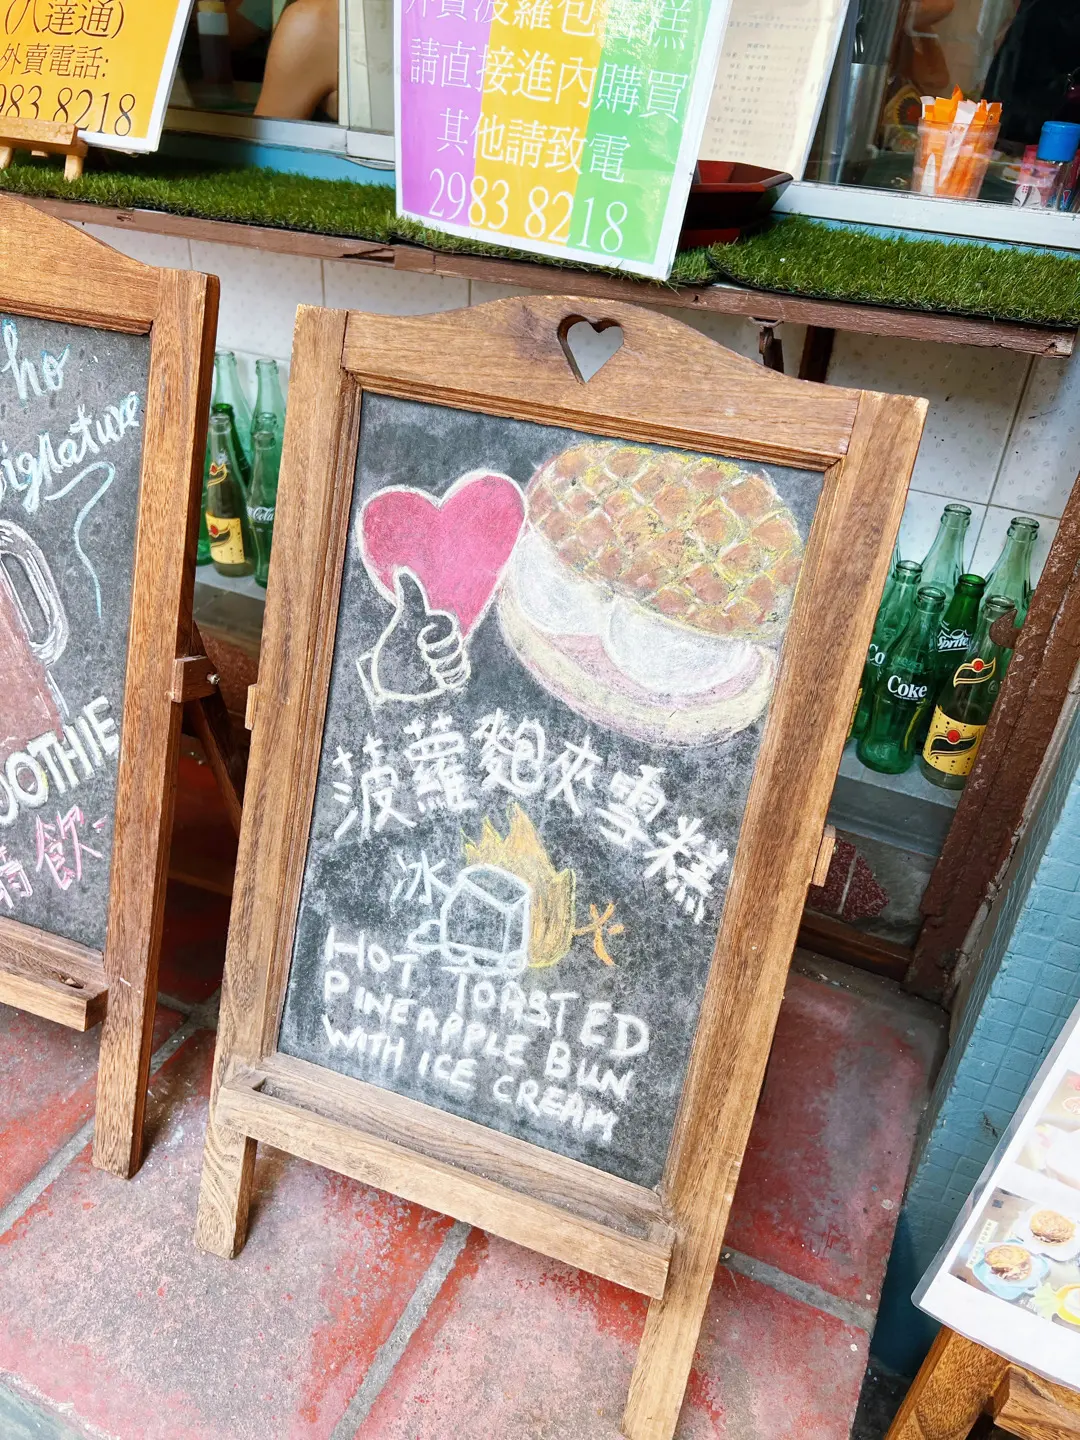 (八達通)
外賣電話:
983 8218
外賣菠蘿包
糕
請直接進內購買
其他請致電
2983 8218
ho
signature
OOTHIE
飲
菠蘿麭夾雪糕
冰
火
HOT TOASTED
PINEAPPLE BUN
WITH ICE CREAM
Coca
Co
Sprite
Coke